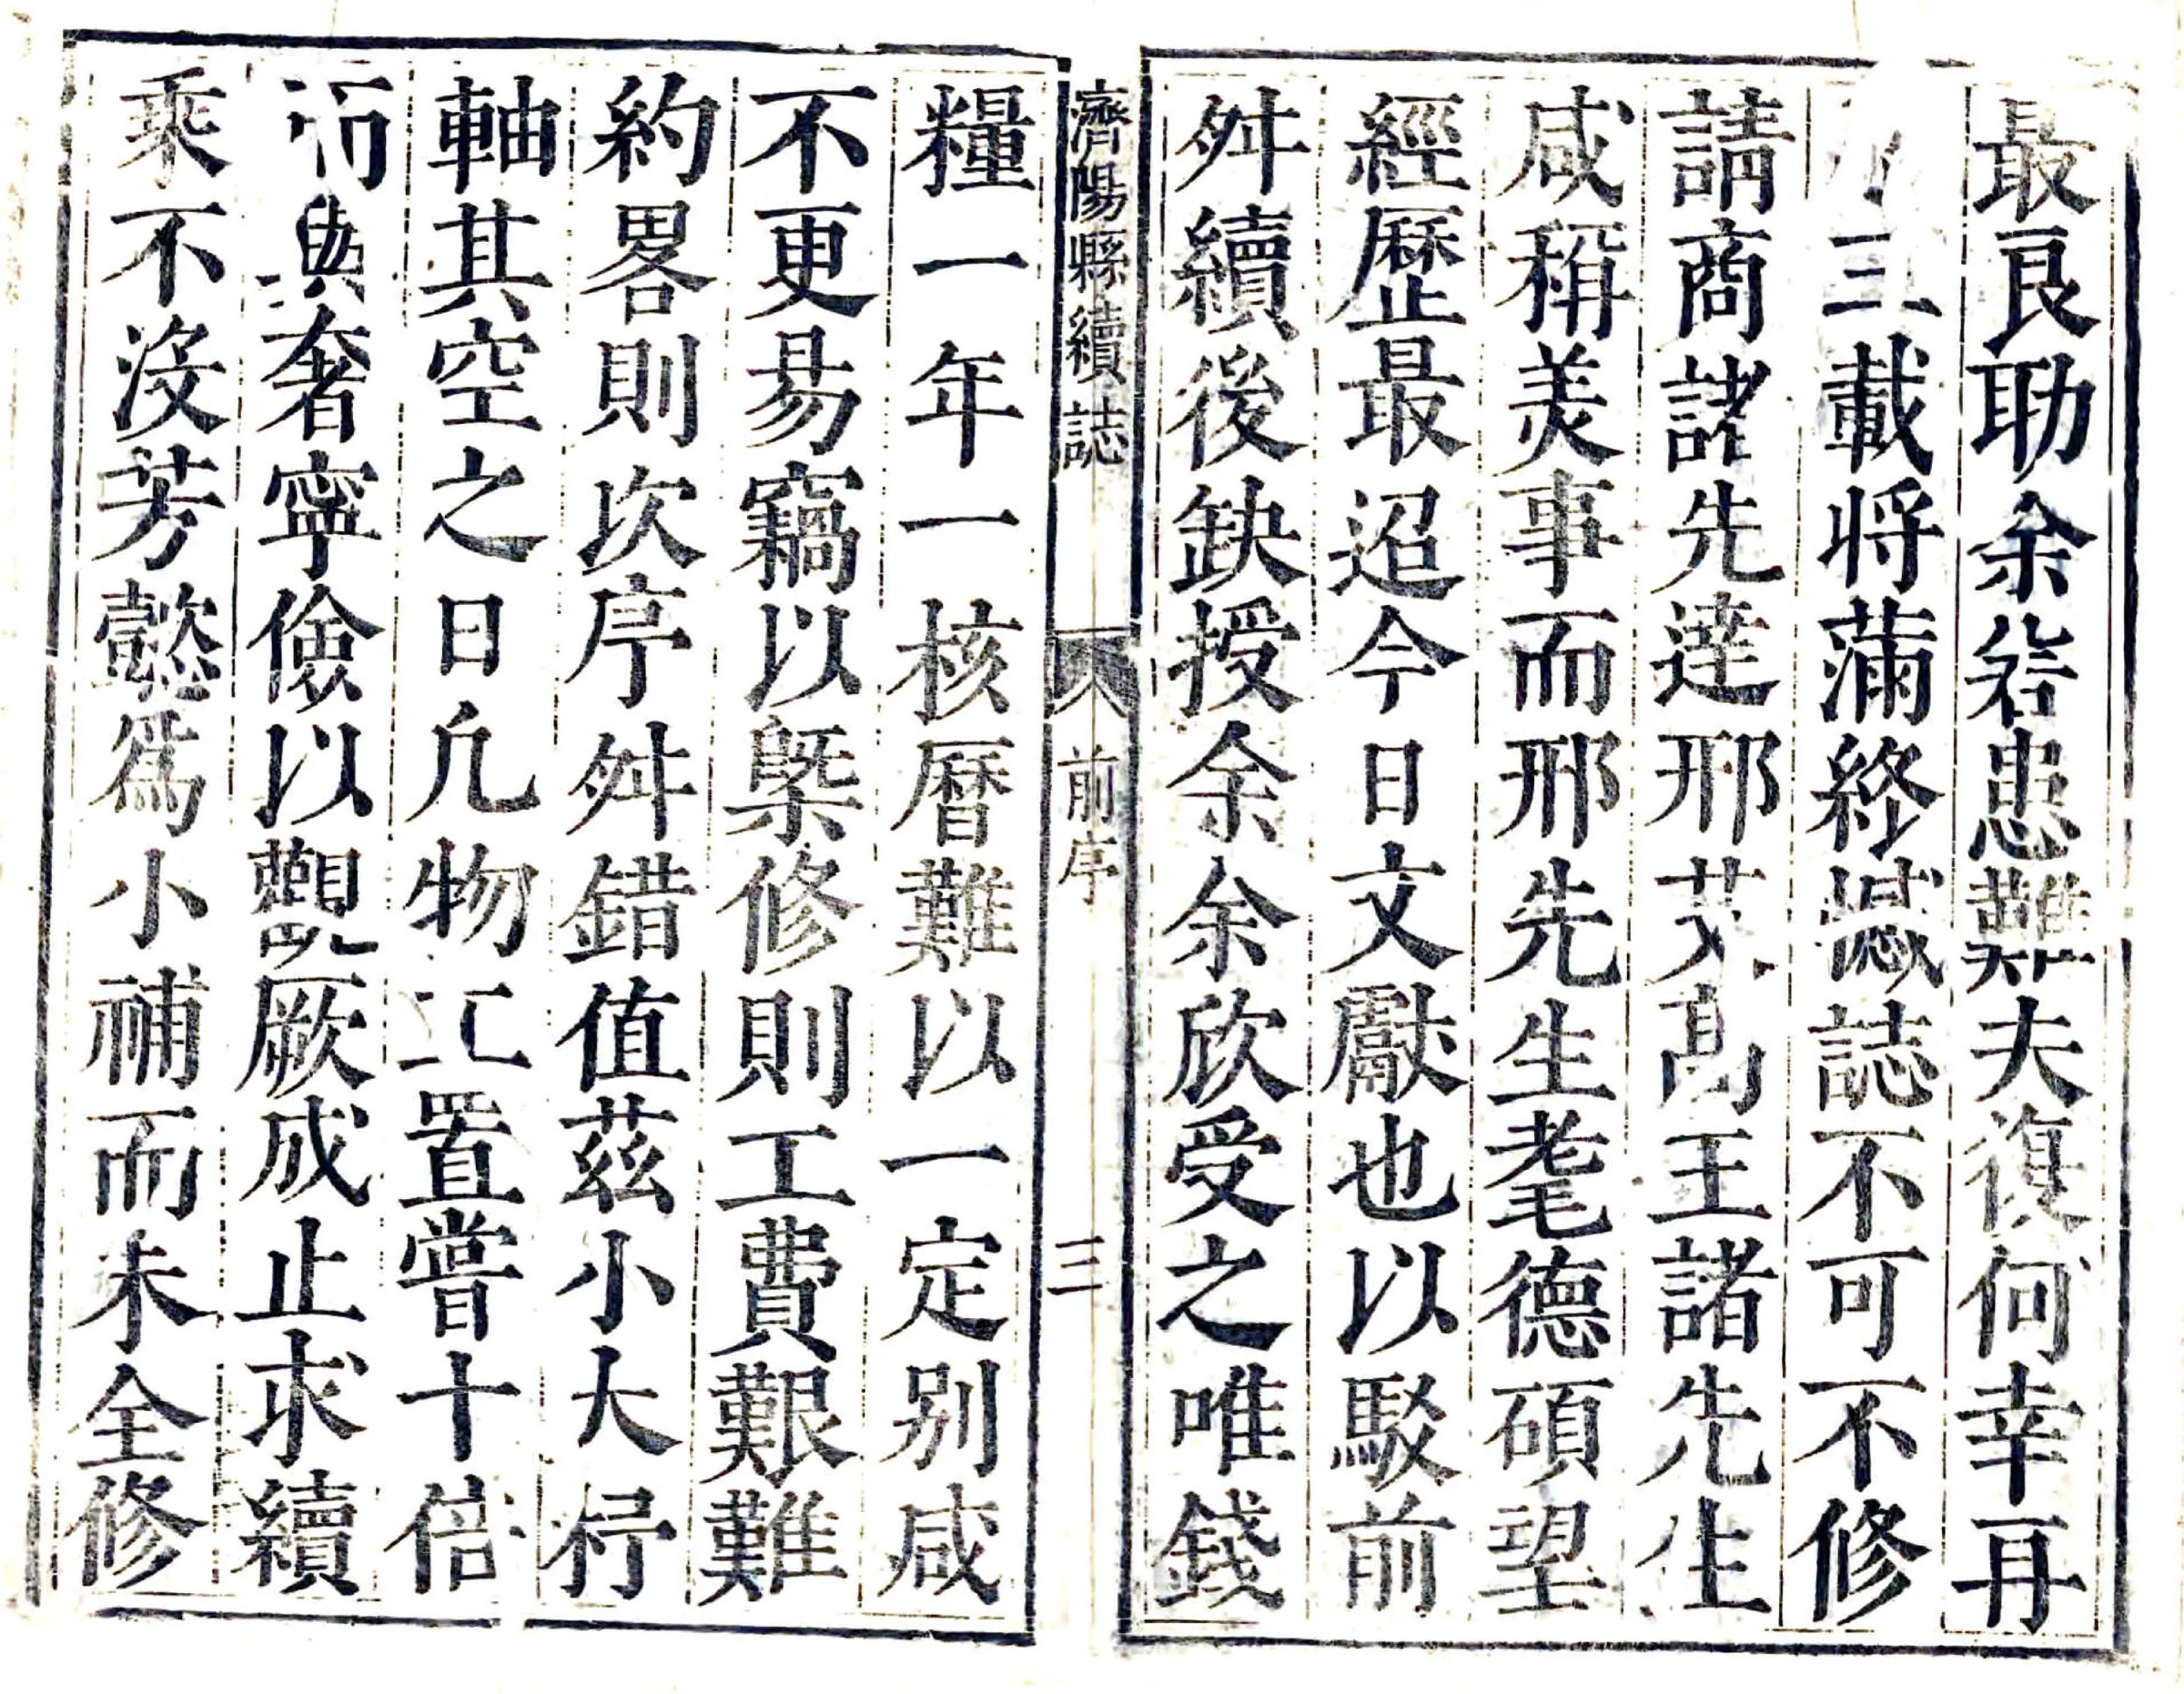 最良助余砦患難夫復何幸再
三載將滿終憾誌不可不修
請商諸先達邢艾高王諸先生
咸稱美事而邢先生耄德碩望
經歷最迢今日文獻也以駁前
舛續後缺授余余欣受之唯錢
濟陽縣續誌 前序 三
糧一年一核曆難以一定别咸
不更易竊以槩修則工費艱難
約畧則次序舛錯值茲小大杼
軸其空之日凡物工置嘗十倍
而與奢寧儉以觀厥成止求續
乘不沒芳懿爲小補而未全修